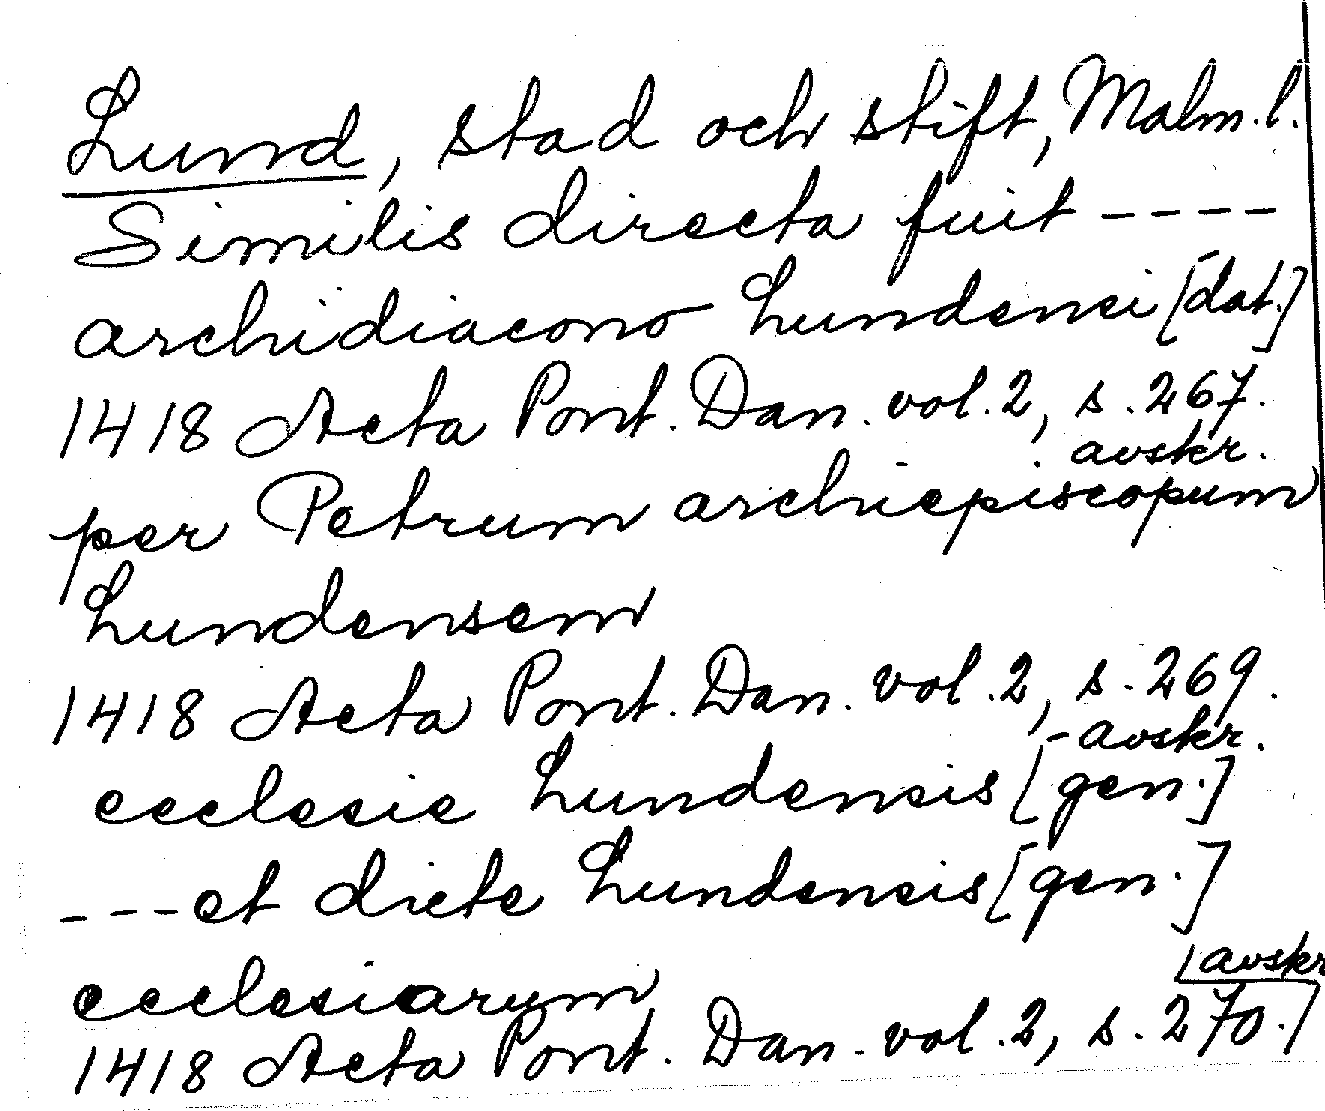 Lund, stad och stift, Malm.l.
Similis directa fuit ----
archidiacono Lundensi [dat.]
1418 Acta Pont. Dan. vol. 2, s. 267.
avskr.
per Petrum archiepiscopum
Lundensem
1418 Acta Pont. Dan. vol. 2, s. 269.
-avskr.
ecclesie Lundensis [gen.]
--- et dicte Lundensis [gen.]
ecclesiarum
avskr
1418 Acta Pont. Dan. vol. 2, s. 270.